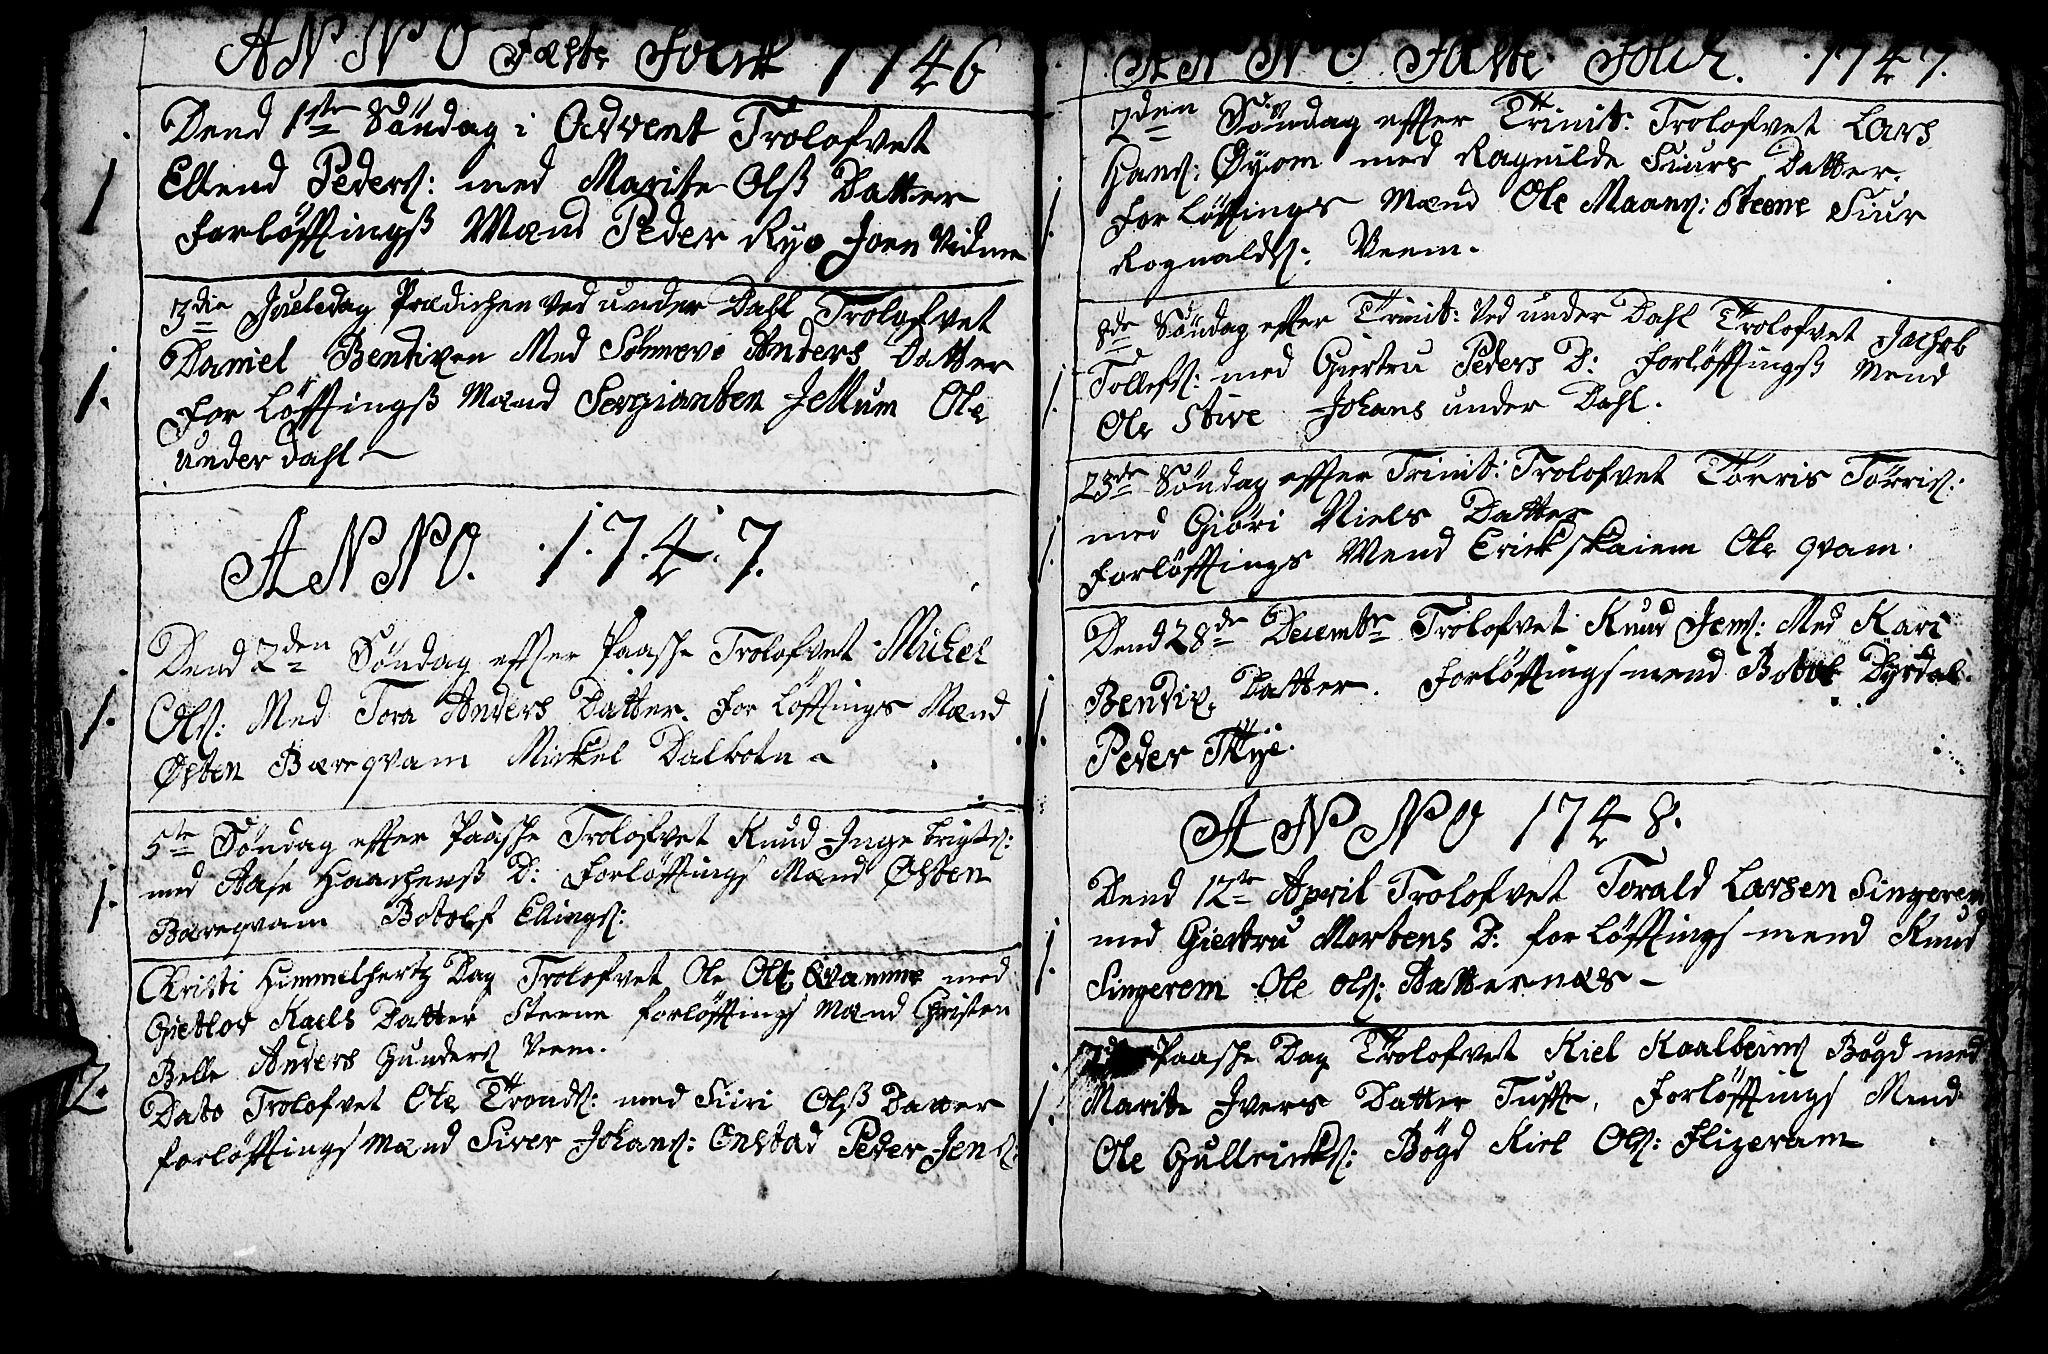 ANNO Fæste Folck 1746
Dend 1ste Söndag i Advent Trolofvet
1 Ellend Peders: med Marite Olß Datter
Forlöfftingß Mænd Peder Rye Joen Vidme
3die Juledag Prædichen ved under Dahl Trolofvet
1. Daniel Bendixen Med Sönnove Anders Datter
For Löfftingß Mænd Sergianten Jellum Ole
under dahl
ANNO. 1747.
Dend 2den Söndag effter Paasche Trolofvet Michel
1. Ols: Med Tora Anders Datter. For Löfftings Mænd
Østen Bæreqvam Mickel Dalbotn
5te Söndag effter Paasche Trolofvet Knud Ingebrigts:
1. med Aase Haachenß D: Forlöfftings Mænd Østen
Bæreqvam Botolf Ellings:
Kristi Himmelhertz Dag Trolofvet Ole Ols Qvamme med
Gietlov Kaels Datter Steene forlöfftings Mænd Christen
Belle Anders Gunders Veem.
2. Dato Trolofvet Ole Tronds: med Siiri Olß Datter
forlöfftings Mænd Siver Johans: Onstad Peder Jens
ANNO Fæste Folck. 1747.
2den Söndag effter Trinit: Trolofvet Lars
Hans: Øyom med Ragnilde Siurs Datter.
1. For Löfftings Mænd Ole Maans: Steene Siur
Rognalds: Veem.
8de Söndag effter Trinit: Ved under Dahl Trolofvet Jachob
1. Tollefs: med Giertru Peders D: Forlöfftingß Mend
Ole Stive Johans under Dahl.
23de Söndag effter Trinit: Trolofvet Törris Törris:
1. med Giöri Niels Datter
Forlöfftings Mend Erick skaiem Ole qvam.
Dend 28de Decembr Trolofvet Knud Jens: Med Kari
1. Bendix. Datter. Forlöfftings mend Botol Dyrdal.
Peder Thye.
ANNO 1748.
Dend 12te April Trolofvet Torald Larsen Singerem
1. med Giertru Mortens D: forlöfftings mend Knud
Singerem Ole Ols: Hatternæs
Paasche Dag Trolofvet Kiel Kaalbeins Bögd med
1. Marite Ivers Datter Tuffte, Forlöfftings Mend
Ole Gullricks: Bögd Kiel Ols: Fligeram